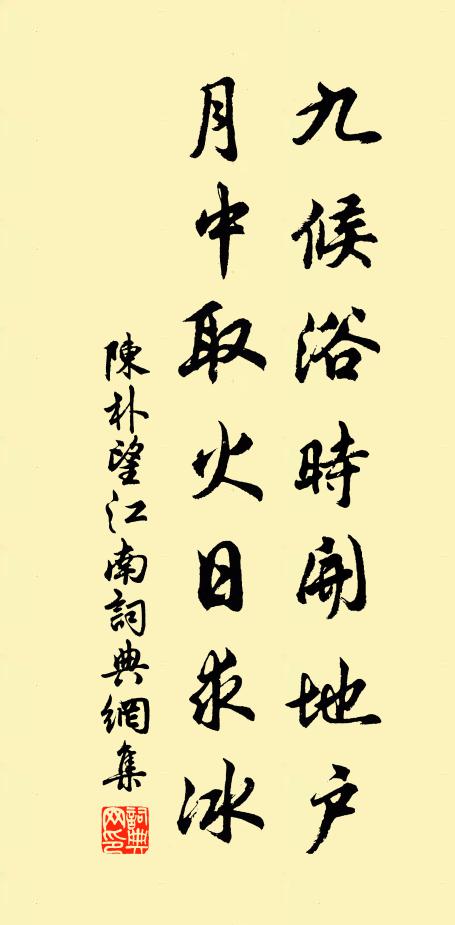 九候浴時開地户
月中取火日求冰
陳朴望江南詞典網集
詞典网印